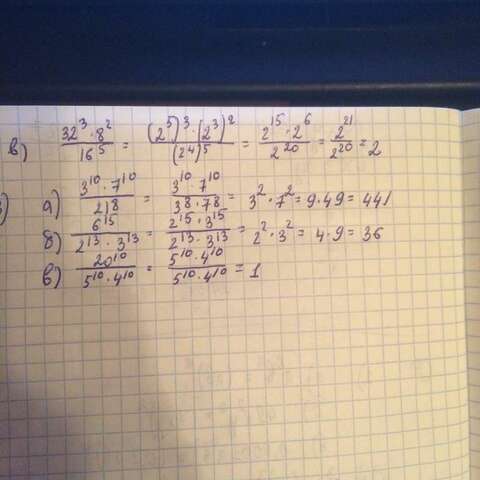 в) 32³·8²/16⁵ = (2⁵)³·(2³)²/(2⁴)⁵ = 2¹⁵·2⁶/2²⁰ = 2²¹/2²⁰ = 2
) а) 3¹⁰·7¹⁰/21⁸ = 3¹⁰·7¹⁰/3⁸·7⁸ = 3²·7² = 9·49 = 441
б) 6¹⁵/2¹³·3¹³ = 2¹⁵·3¹⁵/2¹³·3¹³ = 2²·3² = 4·9 = 36
в) 20¹⁰/5¹⁰·4¹⁰ = 5¹⁰·4¹⁰/5¹⁰·4¹⁰ = 1